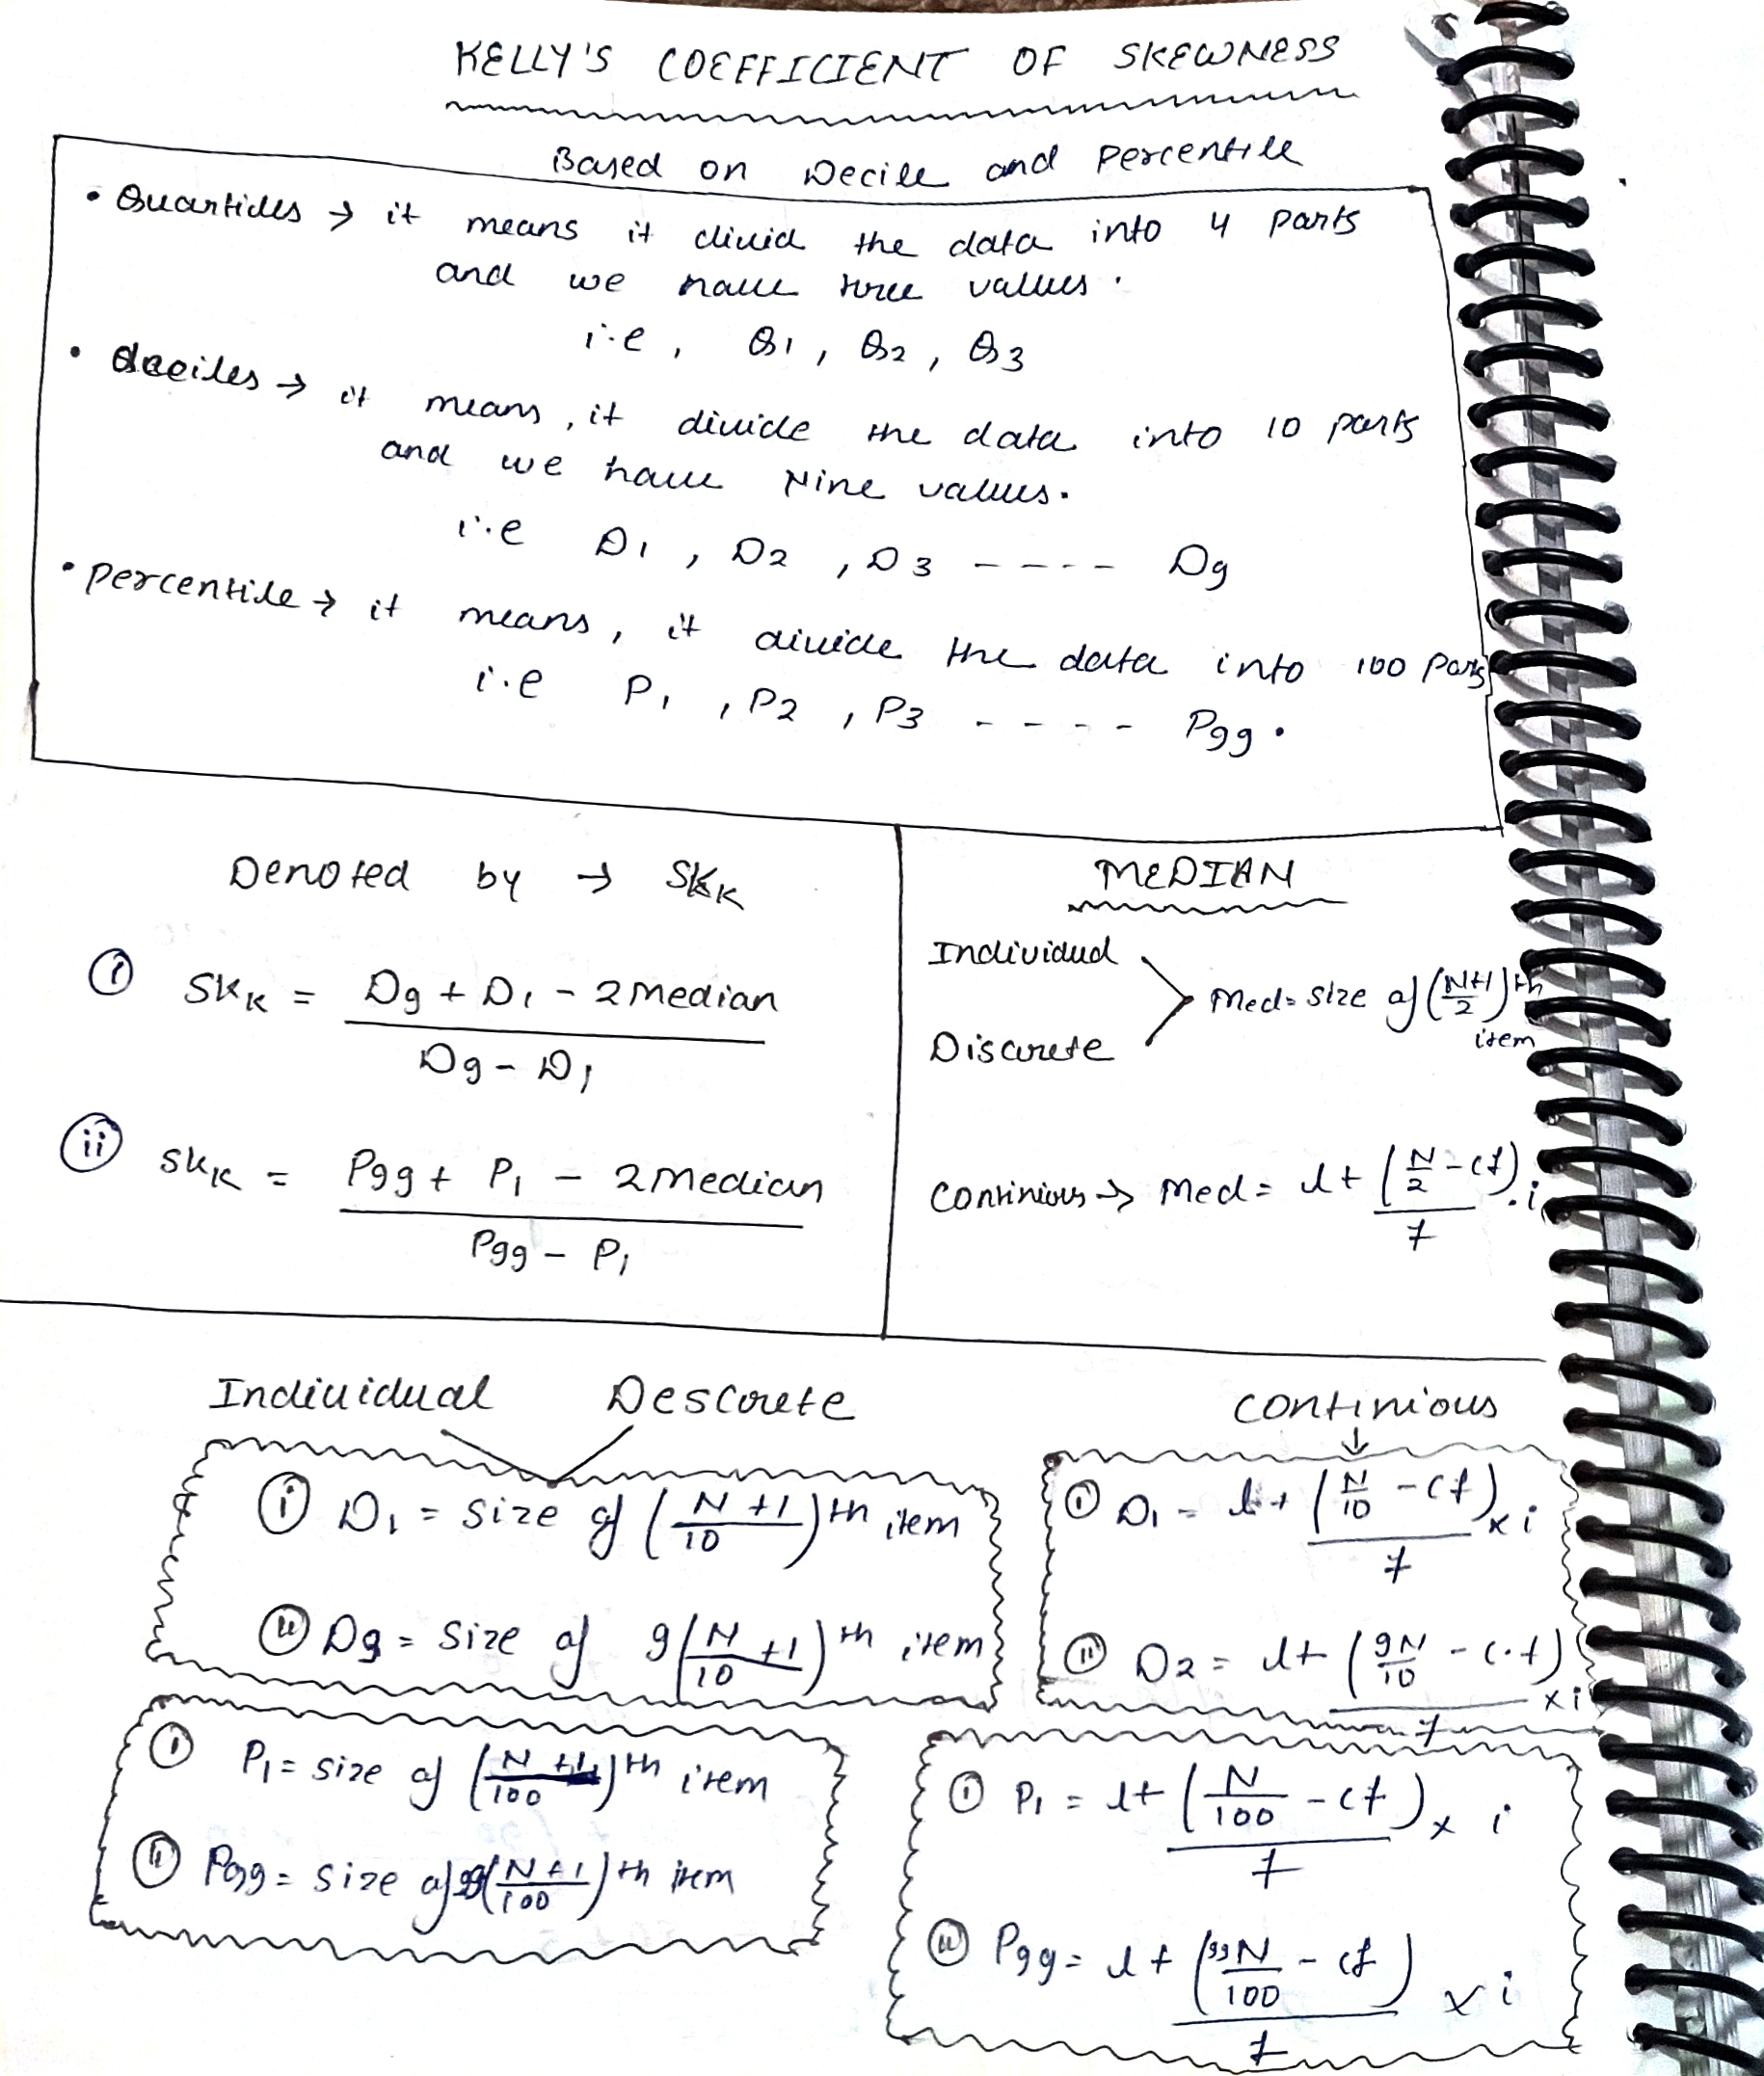 KELLY'S COEFFICIENT OF SKEWNESS
Based on Decile and Percentile
• Quartiles → it means it divid the data into 4 parts
and we have three values.
i.e, Q1, Q2, Q3
• deciles → it means, it divide the data into 10 parts
and we have Nine values.
i.e D1, D2, D3 ---- D9
• percentile → it means, it divide the data into 100 Parts
i.e P1, P2, P3 ---- P99.
Denoted by → SKK
(i) SKK = (D9 + D1 - 2 median) / (D9 - D1)
(ii) SKK = (P99 + P1 - 2 median) / (P99 - P1)
MEDIAN
Individual
Discrete
Med = Size of (N+1/2)th item
Continious → Med = l + (N/2 - cf)/f . i
Individual Descrete
(i) D1 = Size of (N+1/10)th item
(ii) D9 = Size of 9(N+1/10)th item
(i) P1 = Size of (N+1/100)th item
(ii) P99 = Size of 99(N+1/100)th item
Continious
↓
(i) D1 = l + (N/10 - cf)/f x i
(ii) D2 = l + (9N/10 - c.f)/f x i
(i) P1 = l + (N/100 - cf)/f x i
(ii) P99 = l + (99N/100 - cf)/f x i